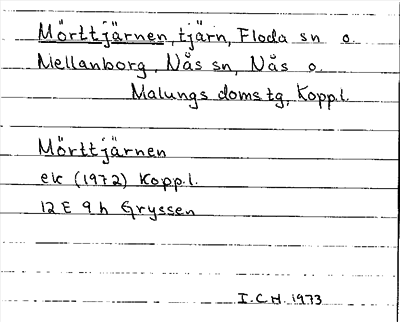 Mörttjärnen, tjärn, Floda sn o.
Mellanborg, Nås sn, Nås o.
Malungs domstg, Koppl.
Mörttjärnen
ek (1972) Koppl.
12 E 9 h Gryssen
I.C.H. 1973